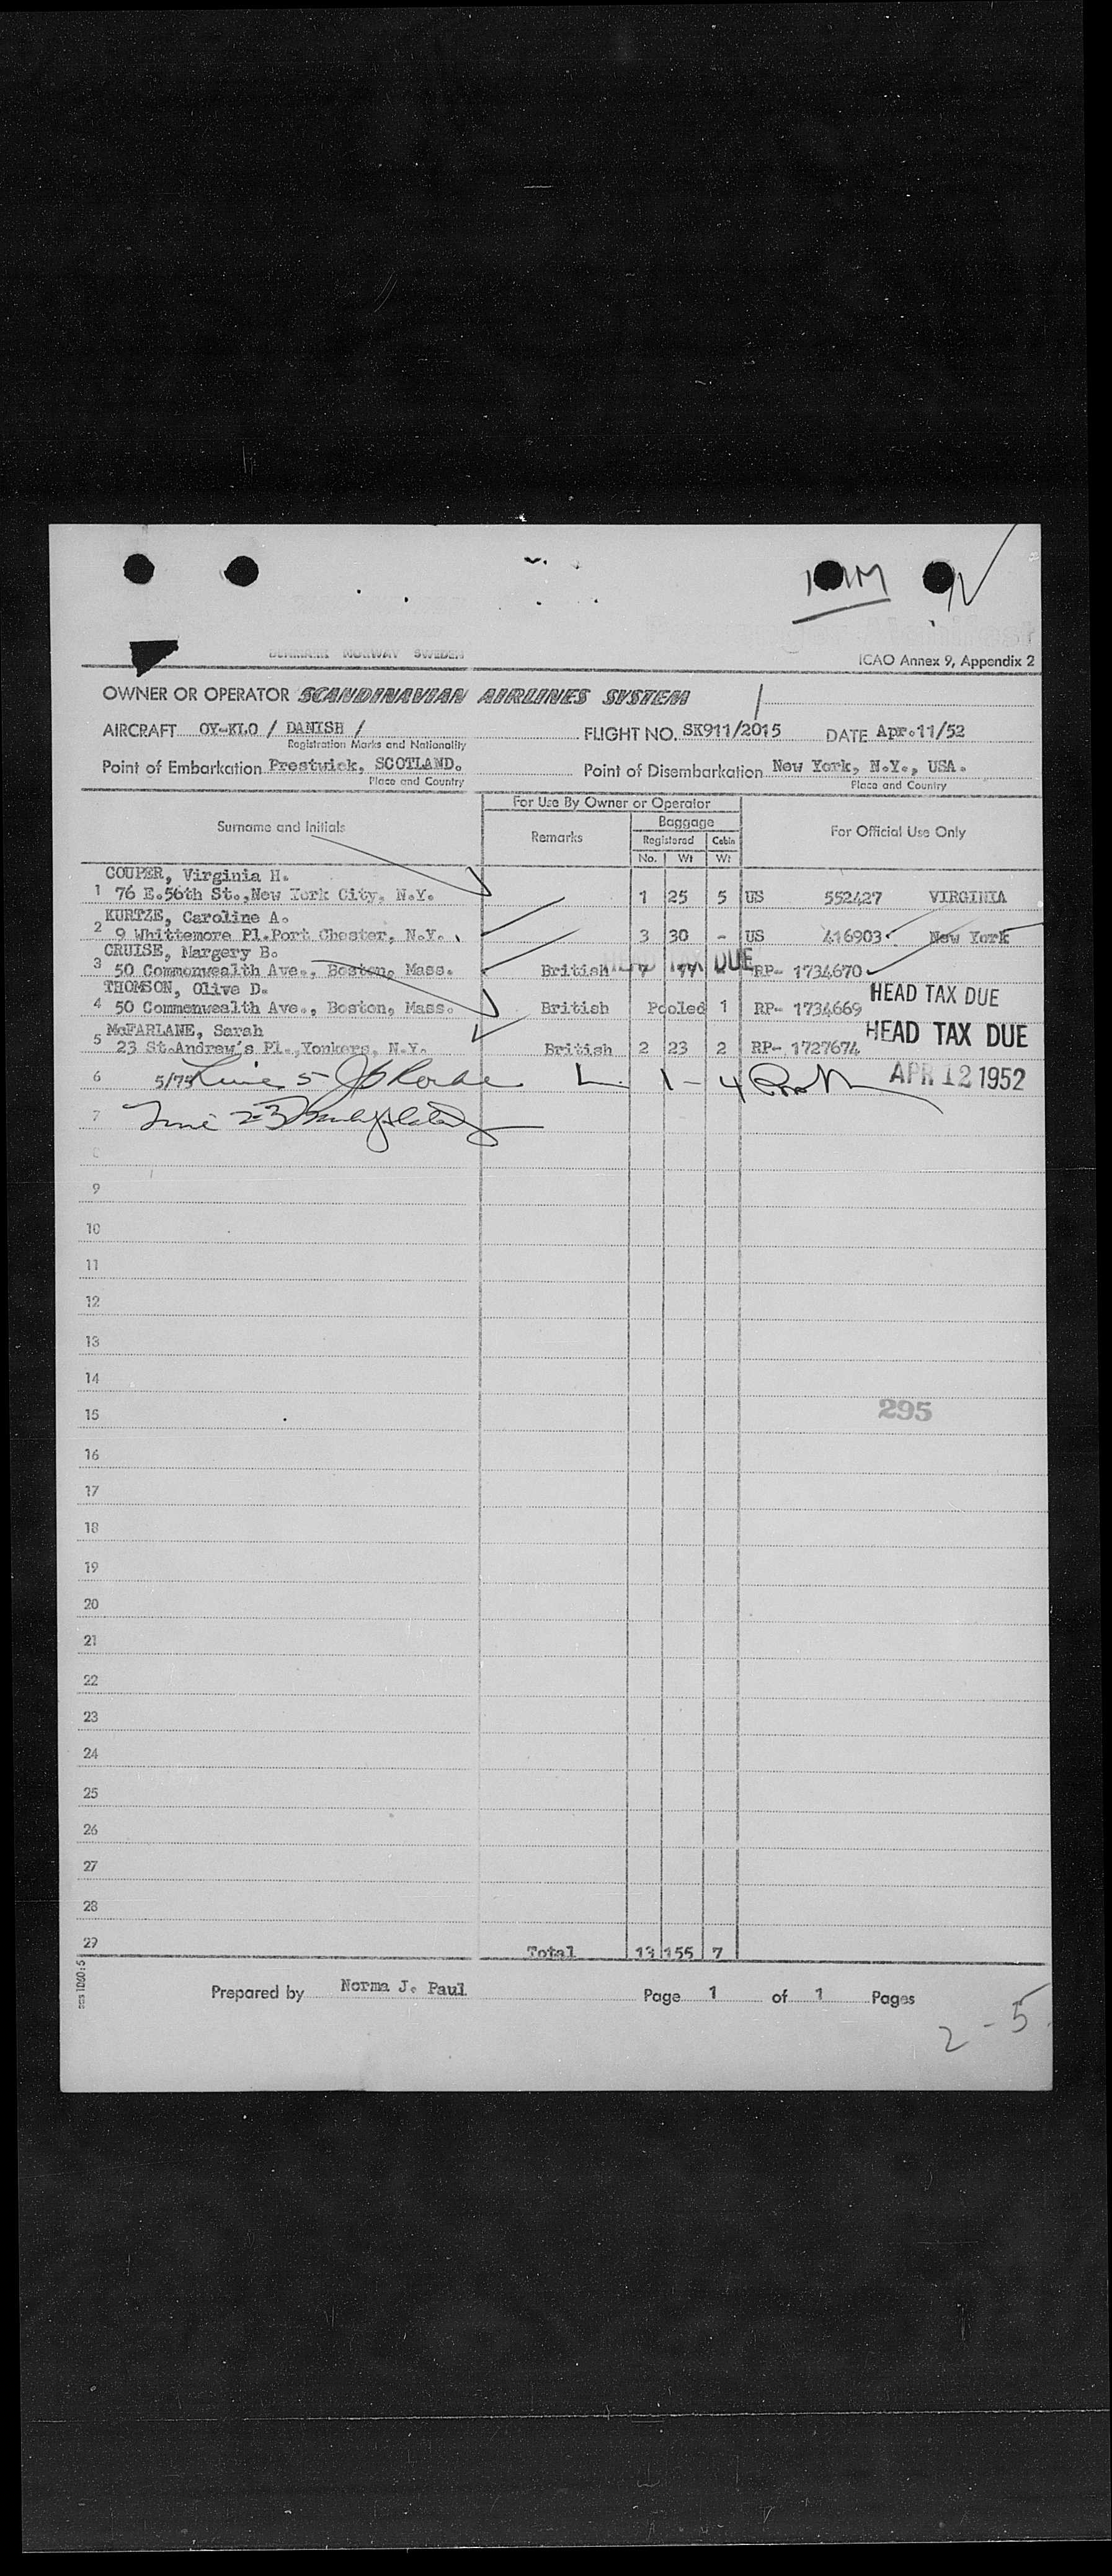 DENMARK NORWAY SWEDEN
ICAO Annex 9, Appendix 2
OWNER OR OPERATOR SCANDINAVIAN AIRLINES SYSTEM
AIRCRAFT OY-KLO / DANISH / FLIGHT NO. SK911/2015 DATE Apr.11/52
Registration Marks and Nationality
Point of Embarkation Prestwick, SCOTLAND. Point of Disembarkation New York, N.Y., USA.
Place and Country Place and Country
For Use By Owner or Operator
Surname and Initials Remarks Baggage For Official Use Only
Registered Cabin
No. Wt Wt
COUPER, Virginia H.
1 76 E.56th St.,New York City, N.Y. 1 25 5 US 552427 VIRGINIA
KURTZE, Caroline A.
2 9 Whittemore Pl.Port Chester, N.Y. 3 30 - US 416903 New York
CRUISE, Margery B. HEAD TAX DUE
3 50 Commonwealth Ave., Boston, Mass. British 7 77 RP- 1734670
THOMSON, Olive D. HEAD TAX DUE
4 50 Commonwealth Ave., Boston, Mass. British Pooled 1 RP- 1734669
McFARLANE, Sarah HEAD TAX DUE
5 23 St.Andrew's Pl.,Yonkers, N.Y. British 2 23 2 RP- 1727674
6 5/75 Line 5 1 - 4 APR 12 1952
7 Line 2-3
8
9
10
11
12
13
14
15 295
16
17
18
19
20
21
22
23
24
25
26
27
28
29 Total 13 155 7
Prepared by Norma J. Paul Page 1 of 1 Pages
2 - 5